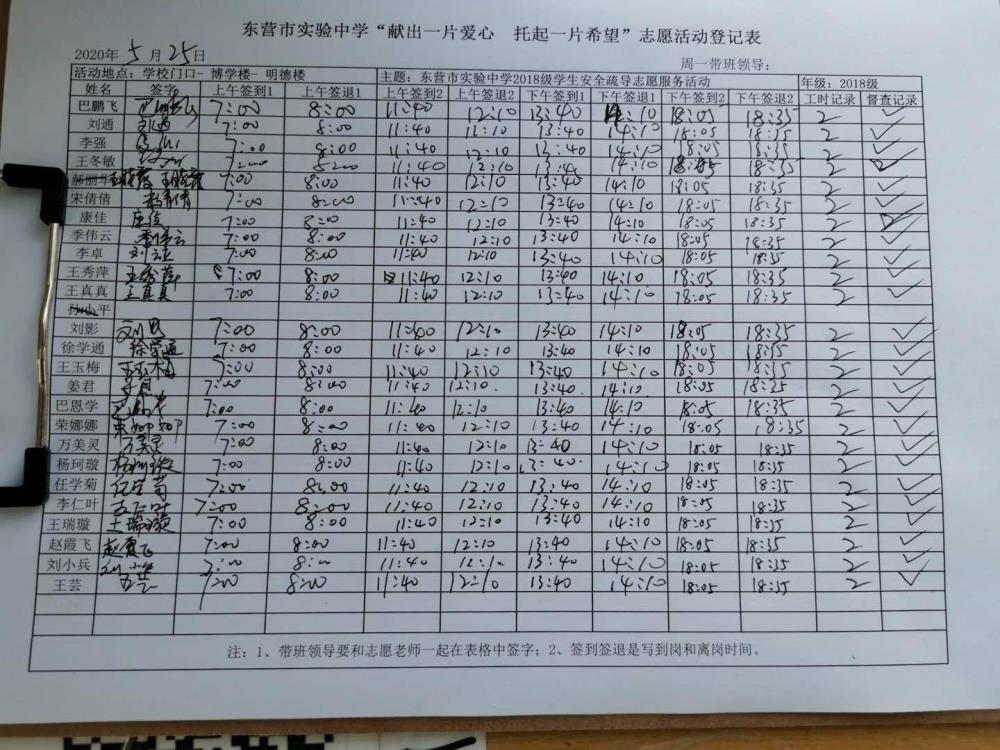 东营市实验中学“献出一片爱心 托起一片希望”志愿活动登记表
2020年 5 月 25日 周一带班领导:
活动地点: 学校门口- 博学楼- 明德楼 主题: 东营市实验中学2018级学生安全疏导志愿服务活动 年级: 2018级
姓名 签字 上午签到1 上午签退1 上午签到2 上午签退2 下午签到1 下午签退1 下午签到2 下午签退2 工时记录 督查记录
巴鹏飞 7:00 8:00 11:40 12:10 13:40 14:10 18:05 18:35 2 ✓
刘通 7:00 8:00 11:40 12:10 13:40 14:10 18:05 18:35 2 ✓
李强 7:00 8:00 11:40 12:10 13:40 14:10 18:05 18:35 2 ✓
王冬敏 7:00 8:00 11:40 12:10 13:40 14:10 18:05 18:35 2
7:00 8:00 11:40 12:10 13:40 14:10 18:05 18:35 2 ✓
宋倩倩 7:00 8:00 11:40 12:10 13:40 14:10 18:05 18:35 2 ✓
康佳 康佳 7:00 8:00 11:40 12:10 13:40 14:10 18:05 18:35 2
季伟云 季伟云 7:00 8:00 11:40 12:10 13:40 14:10 18:05 18:35 2 ✓
李卓 7:00 8:00 11:40 12:10 13:40 14:10 18:05 18:35 2 ✓
王秀萍 王秀萍 7:00 8:00 11:40 12:10 13:40 14:10 18:05 18:35 2 ✓
王真真 王真真 7:00 8:00 11:40 12:10 13:40 14:10 18:05 18:35 2 ✓
平
刘影 7:00 8:00 11:40 12:10 13:40 14:10 18:05 18:35 2 ✓
徐学通 徐学通 7:00 8:00 11:40 12:10 13:40 14:10 18:05 18:35 2 ✓
王玉梅 王玉梅 7:00 8:00 11:40 12:10 13:40 14:10 18:05 18:35 2 ✓
姜君 7:00 8:00 11:40 12:10 13:40 14:10 18:05 18:35 2 ✓
巴恩学 7:00 8:00 11:40 12:10 13:40 14:10 18:05 18:35 2 ✓
荣娜娜 7:00 8:00 11:40 12:10 13:40 14:10 18:05 18:35 2 ✓
万美灵 万美灵 7:00 8:00 11:40 12:10 13:40 14:10 18:05 18:35 2 ✓
杨珂璇 杨珂璇 7:00 8:00 11:40 12:10 13:40 14:10 18:05 18:35 2 ✓
任学菊 任学菊 7:00 8:00 11:40 12:10 13:40 14:10 18:05 18:35 2 ✓
李仁叶 7:00 8:00 11:40 12:10 13:40 14:10 18:05 18:35 2 ✓
王瑞璇 王瑞璇 7:00 8:00 11:40 12:10 13:40 14:10 18:05 18:35 2 ✓
赵霞飞 赵霞飞 7:00 8:00 11:40 12:10 13:40 14:10 18:05 18:35 2 ✓
刘小兵 7:00 8:00 11:40 12:10 13:40 14:10 18:05 18:35 2 ✓
王芸 7:00 8:00 11:40 12:10 13:40 14:10 18:05 18:35 2 ✓
注: 1、带班领导要和志愿老师一起在表格中签字; 2、签到签退是写到岗和离岗时间。